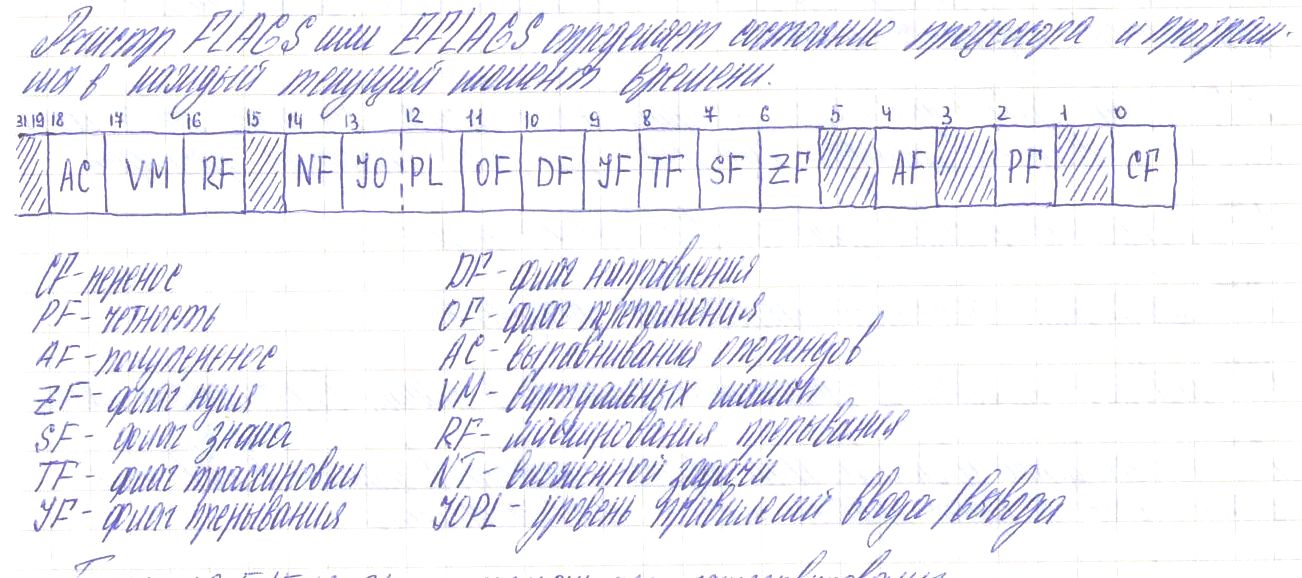 Регистр FLAGS или EFLAGS определяет состояние процессора и програм-
мы в каждый текущий момент времени.
31 19 18 17 16 15 14 13 12 11 10 9 8 7 6 5 4 3 2 1 0
AC VM RF NF IO PL OF DF IF TF SF ZF AF PF CF
CF - перенос
PF - четность
AF - полуперенос
ZF - флаг нуля
SF - флаг знака
TF - флаг трассировки
IF - флаг прерывания
DF - флаг направления
OF - флаг переполнения
AC - выравнивания операндов
VM - виртуальных машин
RF - маскирования прерывания
NT - вложенной задачи
IOPL - уровень привилегий ввода/вывода